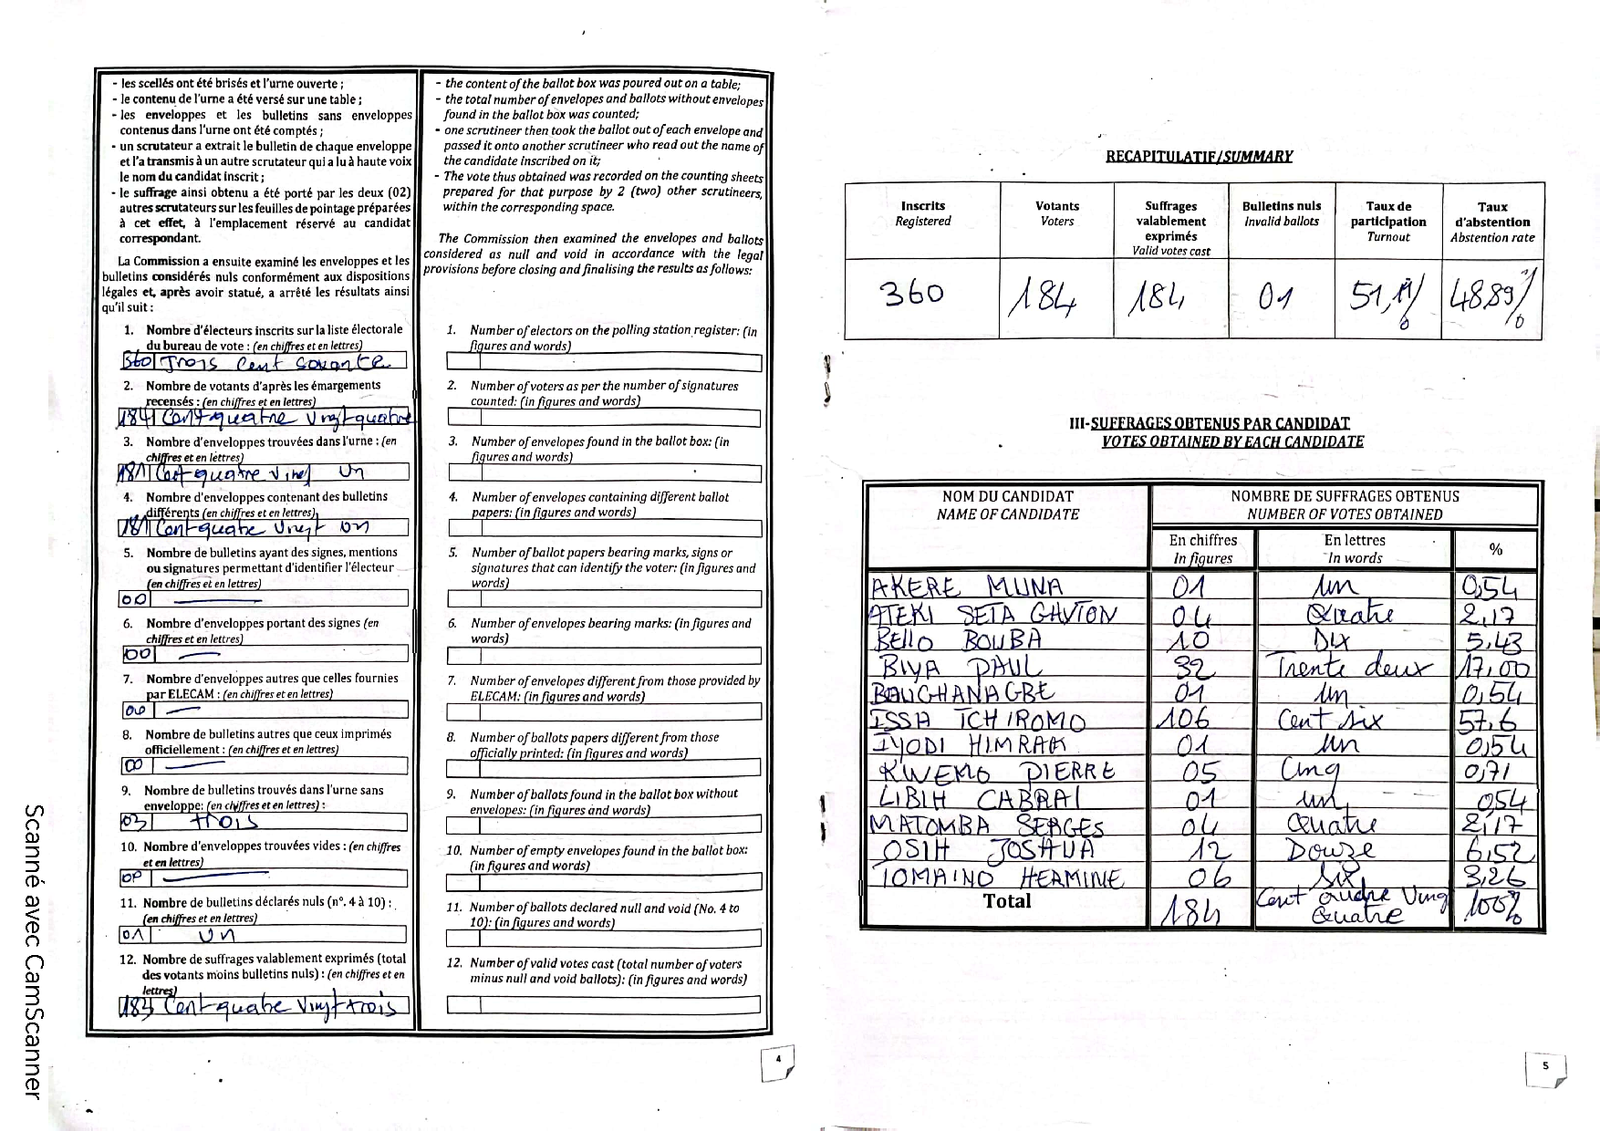 - les scellés ont été brisés et l'urne ouverte ;
- le contenu de l'urne a été versé sur une table ;
- les enveloppes et les bulletins sans enveloppes
contenus dans l'urne ont été comptés ;
- un scrutateur a extrait le bulletin de chaque enveloppe
et l'a transmis à un autre scrutateur qui a lu à haute voix
le nom du candidat inscrit ;
- le suffrage ainsi obtenu a été porté par les deux (02)
autres scrutateurs sur les feuilles de pointage préparées
à cet effet, à l'emplacement réservé au candidat
correspondant.
La Commission a ensuite examiné les enveloppes et les
bulletins considérés nuls conformément aux dispositions
légales et, après avoir statué, a arrêté les résultats ainsi
qu'il suit :
1. Nombre d'électeurs inscrits sur la liste électorale
du bureau de vote : (en chiffres et en lettres)
360 Trois Cent soixante
2. Nombre de votants d'après les émargements
recensés : (en chiffres et en lettres)
184 Cent quatre Vingt quatre
3. Nombre d'enveloppes trouvées dans l'urne : (en
chiffres et en lettres)
181 Cent quatre Vingt Un
4. Nombre d'enveloppes contenant des bulletins
différents (en chiffres et en lettres)
181 Cent quatre Vingt Un
5. Nombre de bulletins ayant des signes, mentions
ou signatures permettant d'identifier l'électeur
(en chiffres et en lettres)
00
6. Nombre d'enveloppes portant des signes (en
chiffres et en lettres)
00
7. Nombre d'enveloppes autres que celles fournies
par ELECAM : (en chiffres et en lettres)
00
8. Nombre de bulletins autres que ceux imprimés
officiellement : (en chiffres et en lettres)
00
9. Nombre de bulletins trouvés dans l'urne sans
enveloppe: (en chiffres et en lettres) :
03 trois
10. Nombre d'enveloppes trouvées vides : (en chiffres
et en lettres)
00
11. Nombre de bulletins déclarés nuls (n°. 4 à 10) :
(en chiffres et en lettres)
01 Un
12. Nombre de suffrages valablement exprimés (total
des votants moins bulletins nuls) : (en chiffres et en
lettres)
183 Cent quatre Vingt trois
- the content of the ballot box was poured out on a table;
- the total number of envelopes and ballots without envelopes
found in the ballot box was counted;
- one scrutineer then took the ballot out of each envelope and
passed it onto another scrutineer who read out the name of
the candidate inscribed on it;
- The vote thus obtained was recorded on the counting sheets
prepared for that purpose by 2 (two) other scrutineers,
within the corresponding space.
The Commission then examined the envelopes and ballots
considered as null and void in accordance with the legal
provisions before closing and finalising the results as follows:
1. Number of electors on the polling station register: (in
figures and words)
2. Number of voters as per the number of signatures
counted: (in figures and words)
3. Number of envelopes found in the ballot box: (in
figures and words)
4. Number of envelopes containing different ballot
papers: (in figures and words)
5. Number of ballot papers bearing marks, signs or
signatures that can identify the voter: (in figures and
words)
6. Number of envelopes bearing marks: (in figures and
words)
7. Number of envelopes different from those provided by
ELECAM: (in figures and words)
8. Number of ballots papers different from those
officially printed: (in figures and words)
9. Number of ballots found in the ballot box without
envelopes: (in figures and words)
10. Number of empty envelopes found in the ballot box:
(in figures and words)
11. Number of ballots declared null and void (No. 4 to
10): (in figures and words)
12. Number of valid votes cast (total number of voters
minus null and void ballots): (in figures and words)
4
Scanné avec CamScanner
RECAPITULATIF/SUMMARY
Inscrits Registered | Votants Voters | Suffrages valablement exprimés Valid votes cast | Bulletins nuls Invalid ballots | Taux de participation Turnout | Taux d'abstention Abstention rate
360 184 184 01 51,11% 48,89%
III-SUFFRAGES OBTENUS PAR CANDIDAT
VOTES OBTAINED BY EACH CANDIDATE
NOM DU CANDIDAT NOMBRE DE SUFFRAGES OBTENUS
NAME OF CANDIDATE NUMBER OF VOTES OBTAINED
En chiffres En lettres %
In figures In words
AKERE MUNA 01 un 0,54
ATEKI SETA GAVTON 04 Quatre 2,17
BELLO BOUBA 10 Dix 5,43
BIYA PAUL 32 Trente deux 17,00
BOUGHANAGBE 01 un 0,54
ISSA TCHIROMO 106 Cent six 57,6
IYODI HIMRAK 01 un 0,54
KWEMO PIERRE 05 Cinq 0,71
LIBIH CABRAL 01 un 054
MATOMBA SERGES 04 Quatre 2,17
OSIH JOSHUA 12 Douze 6,52
TOMAINO HERMINE 06 six 3,26
Total 184 Cent Quatre Ving Quatre 100%
5